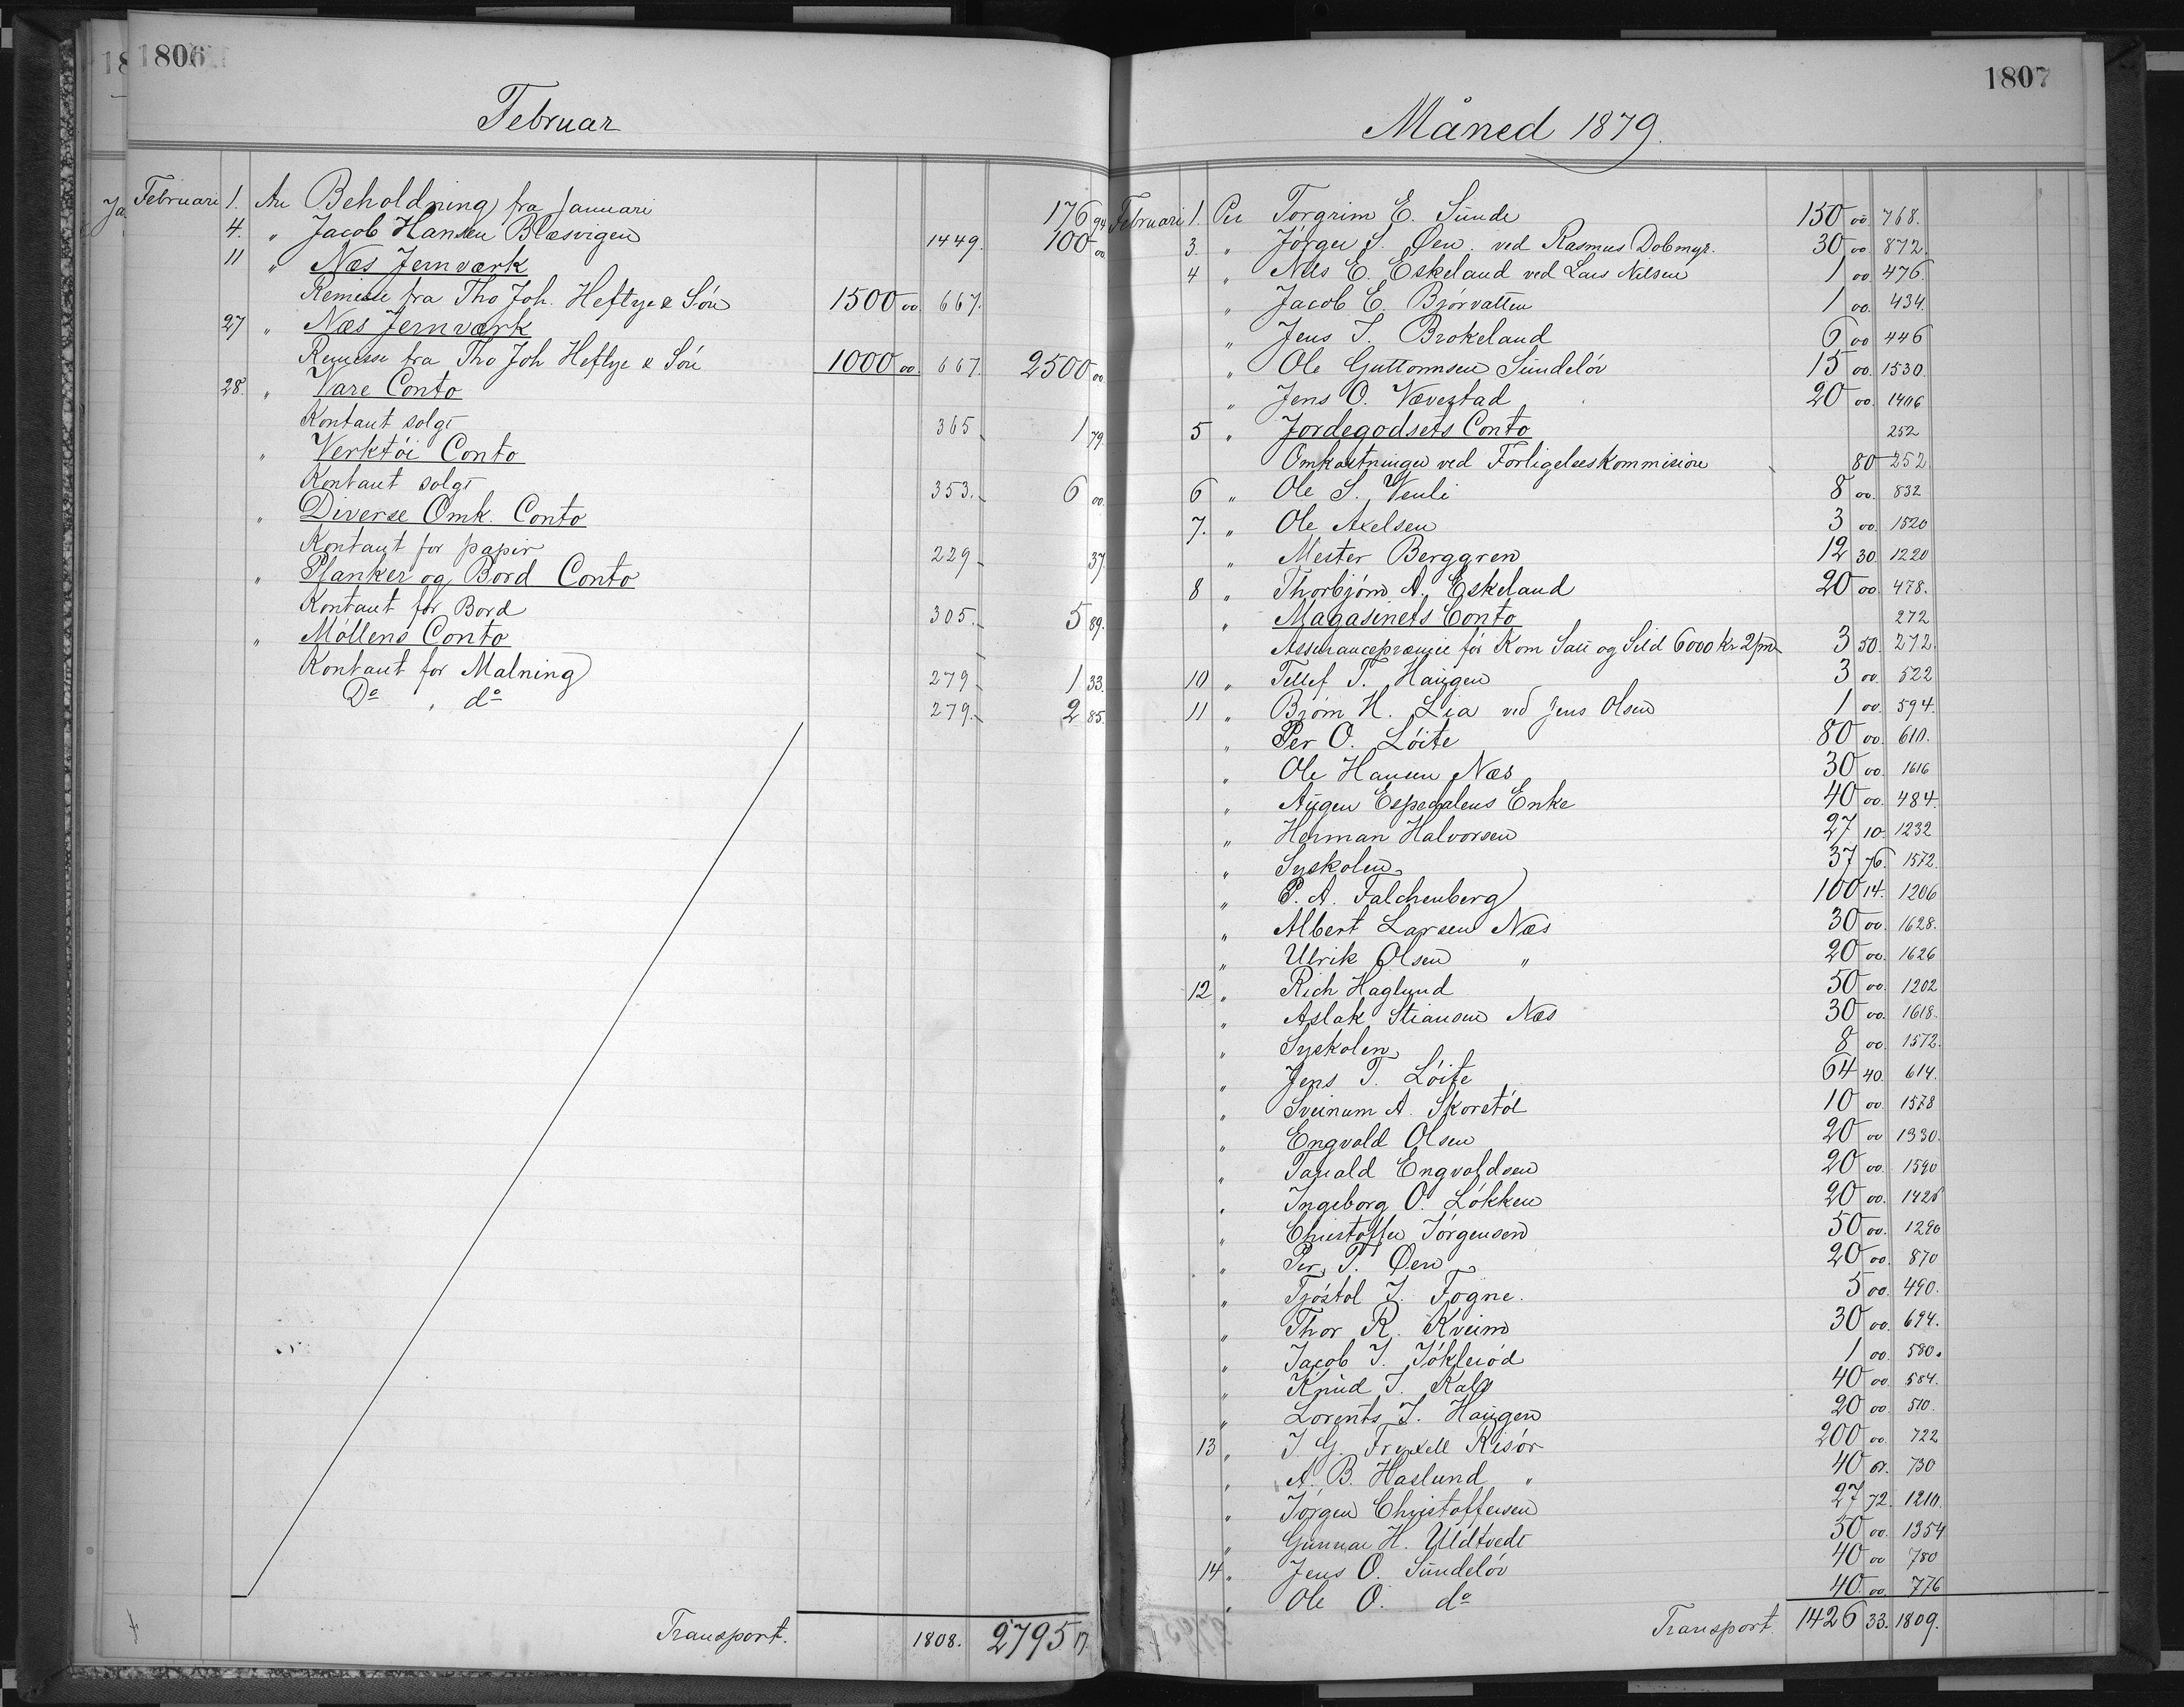 1806
Februar
Februari 1. An Beholdning fra Januari 176 94
4. " Jacob Hansen Blæsvigen 1449. 100 00
11 " Næs Jernværk
Remisse fra Tho Joh. Heftye & Sön 1500 00. 667.
27 " Næs Jernværk
Remisse fra Tho Joh Heftye & Sön 1000 00. 667. 2500 00
28. " Vare Conto
Kontant solgt 365 1 79.
" Verktöi Conto
Kontant solgt 353. 6 00.
" Diverse Omk. Conto
Kontant for papir 229 37
" Planker og Bord Conto
Kontant for Bord 305. 5 89.
" Möllens Conto
Kontant for Malning 279 1 33.
Do " do 279. 2 85.
Transport. 1808. 2795 17
1807
Måned 1879.
Februari 1. Per Torgrim E. Sunde 150 00 768.
3. " Jörgen S. Øen. ved Rasmus Dobmyr. 30 00. 872.
4 " Nils E. Eskeland ved Lars Nilsen 1 00 476.
" Jacob E. Bjørvatten 1 00. 434.
" Jens T. Brokeland 6 00 446
" Ole Guttormsen Sundelöv 15 00. 1530.
" Jens O. Vævestad 20 00. 1406
5 " Jordegodsets Conto 252
Omkostninger ved Forligelseskommision 80 252
6 " Ole S. Venli 8 00. 832
7. " Ole Axelsen 3 00. 1520
" Mester Berggren 12 30. 1220
8 " Thorbjörn A. Eskeland 20 00. 478.
" Magasinets Conto 272
Assurancepræmie for Korn Salt og Sild 6000 Kr 2/m 3 50. 272.
10 " Tellef T. Haugen 3 00. 522
11 " Bjørn H. Lia ved Jens Olsen 1 00. 594.
" Per O. Löite 80 00. 610.
" Ole Hansen Næs 30 00. 1616
" Aagen Espedalens Enke 40 00. 484.
" Herman Halvorsen 27 10. 1232
" Syskolen 37 76. 1572.
" P. A. Falchenberg 100 14. 1206
" Albert Larsen Næs 30 00. 1628.
" Ulrik Olsen " 20 00. 1626
12 " Rich Haglund 50 00. 1202
" Aslak Stiansen Næs 30 00. 1618.
" Syskolen 8 00. 1572.
" Jens T. Löite 64 40. 614.
" Sveinum A. Skorstöl 10 00. 1578
" Engvald Olsen 20 00 1330.
" Tarald Engvoldsen 20 00. 1590
" Ingeborg O. Lökken 20 00. 1426
" Christoffer Jörgensen 50 00. 1290
" Per T. Øen 20 00. 870
" Tjöstol J. Fogne. 5 00. 490.
" Thor R. Kveim 30 00. 694.
" Jacob J. Tökleiöd 1 00. 580.
" Knud J. Kalo 40 00. 584.
" Lorents J. Haugen 20 00. 510.
13 " J. G. Fryxell Risör 200 00. 722
" A. B. Haslund " 40 61. 730
" Jörgen Christoffersen 27 72. 1210.
" Gunnar H. Uldtvedt 50 00. 1354
14 " Jens O. Sundelöv 40 00 780
" Ole O. do 40. 00. 776
Transport 1426 33. 1809.